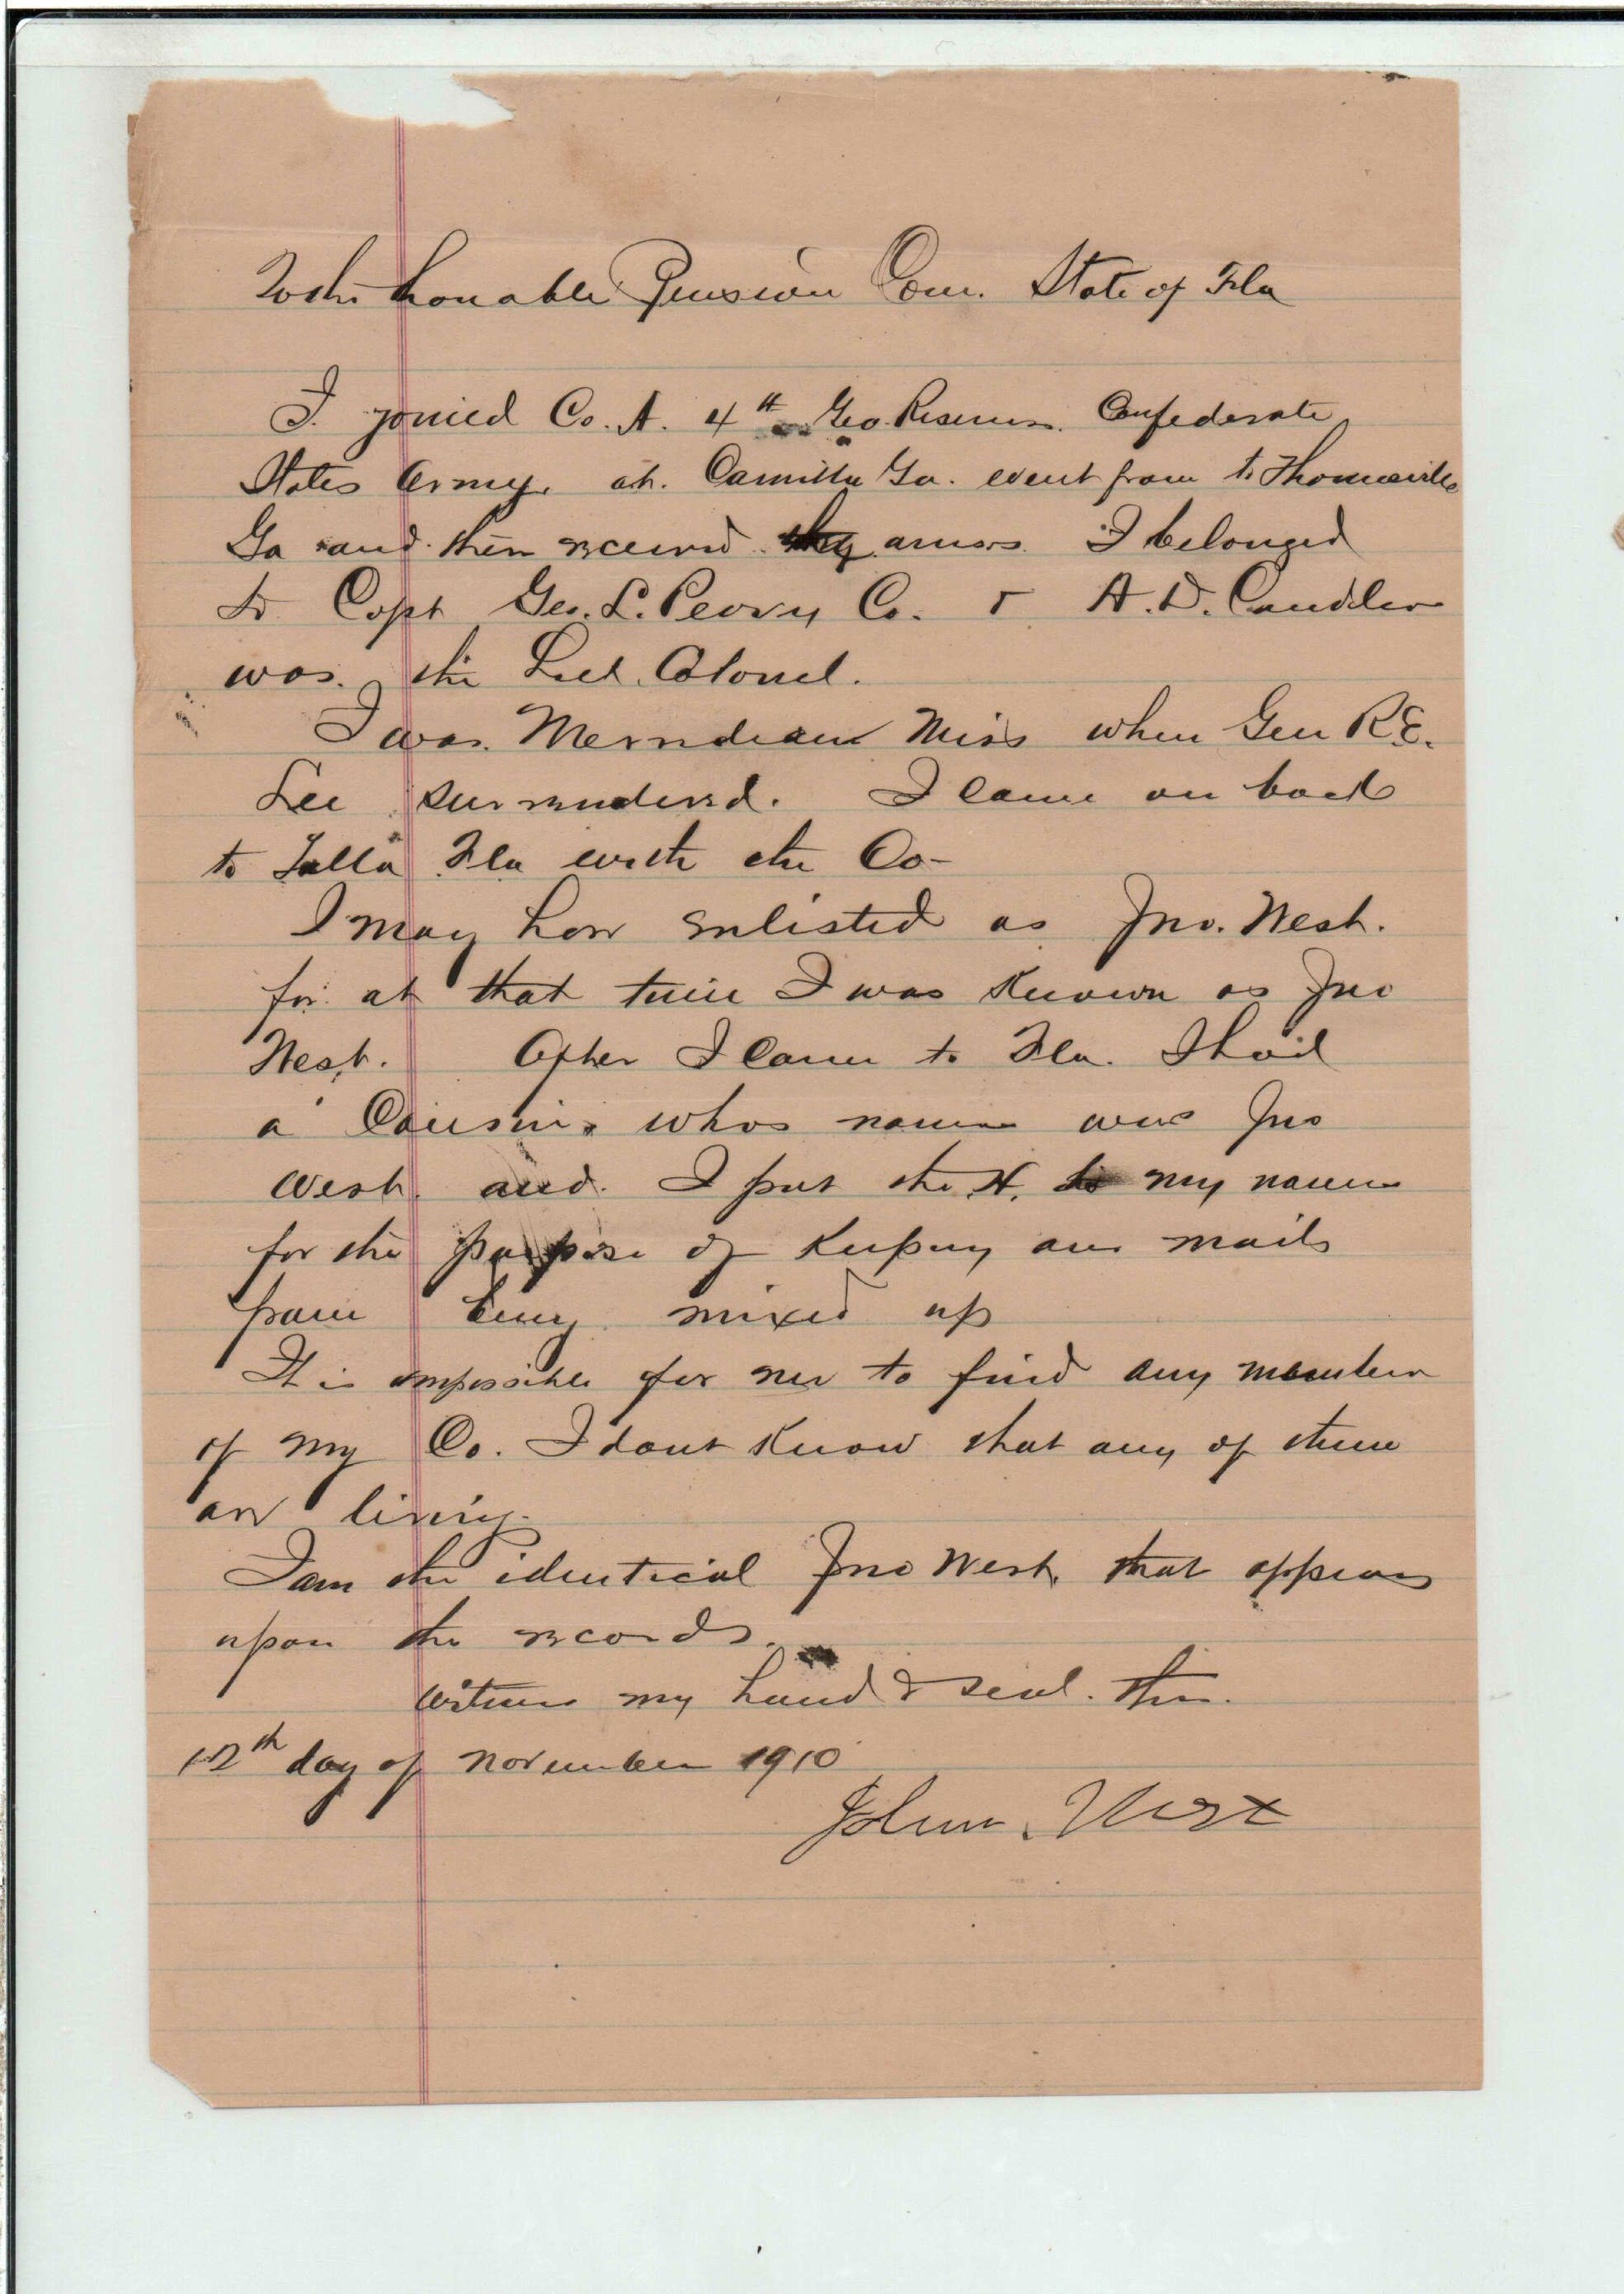 To the honable Pension Com. State of Fla
I joined Co. A. 4th Geo. Reserves. Confederate
States Army, at. Camilla Ga. went from to Thomasville
Ga and then received arms. I belonged
to Capt Geo. L. Peovy Co. & A. D. Candler
was. the Lieut. Colonel.
I was. Merridean Miss when Gen R.E.
Lee surrenderd. I came on back
to Talla Fla with the Co-
I may have enlisted as Jno. West.
for at that time I was Known as Jno
West. After I came to Fla. I had
a Cousin, whos name was Jno
West. and. I put the H. to my name
for the purpose of Keeping our mails
from being mixed up
It is impossible for me to find any members
of my Co. I dont Know that any of them
are living.
I am the identical Jno West, that appears
upon the records.
Witness my hand & seal. this.
12th day of November 1910
John. West